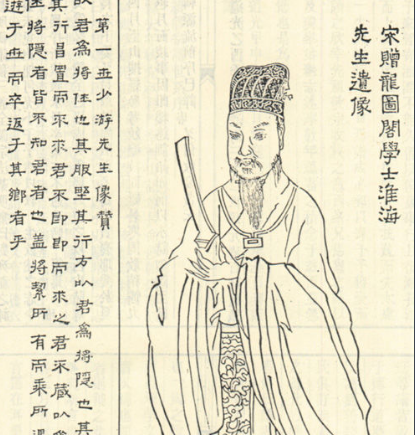 宋贈龍圖閣學士淮海
先生遺像
第一世少游先生像贊
以君為將仕也其服其行方以君為將隱也其
其行昌置而不求君不即即而求之君不藏以為
仕將隱者皆不知君者也蓋將挈所有而乘所遇
遊于世而卒返于其鄉者乎